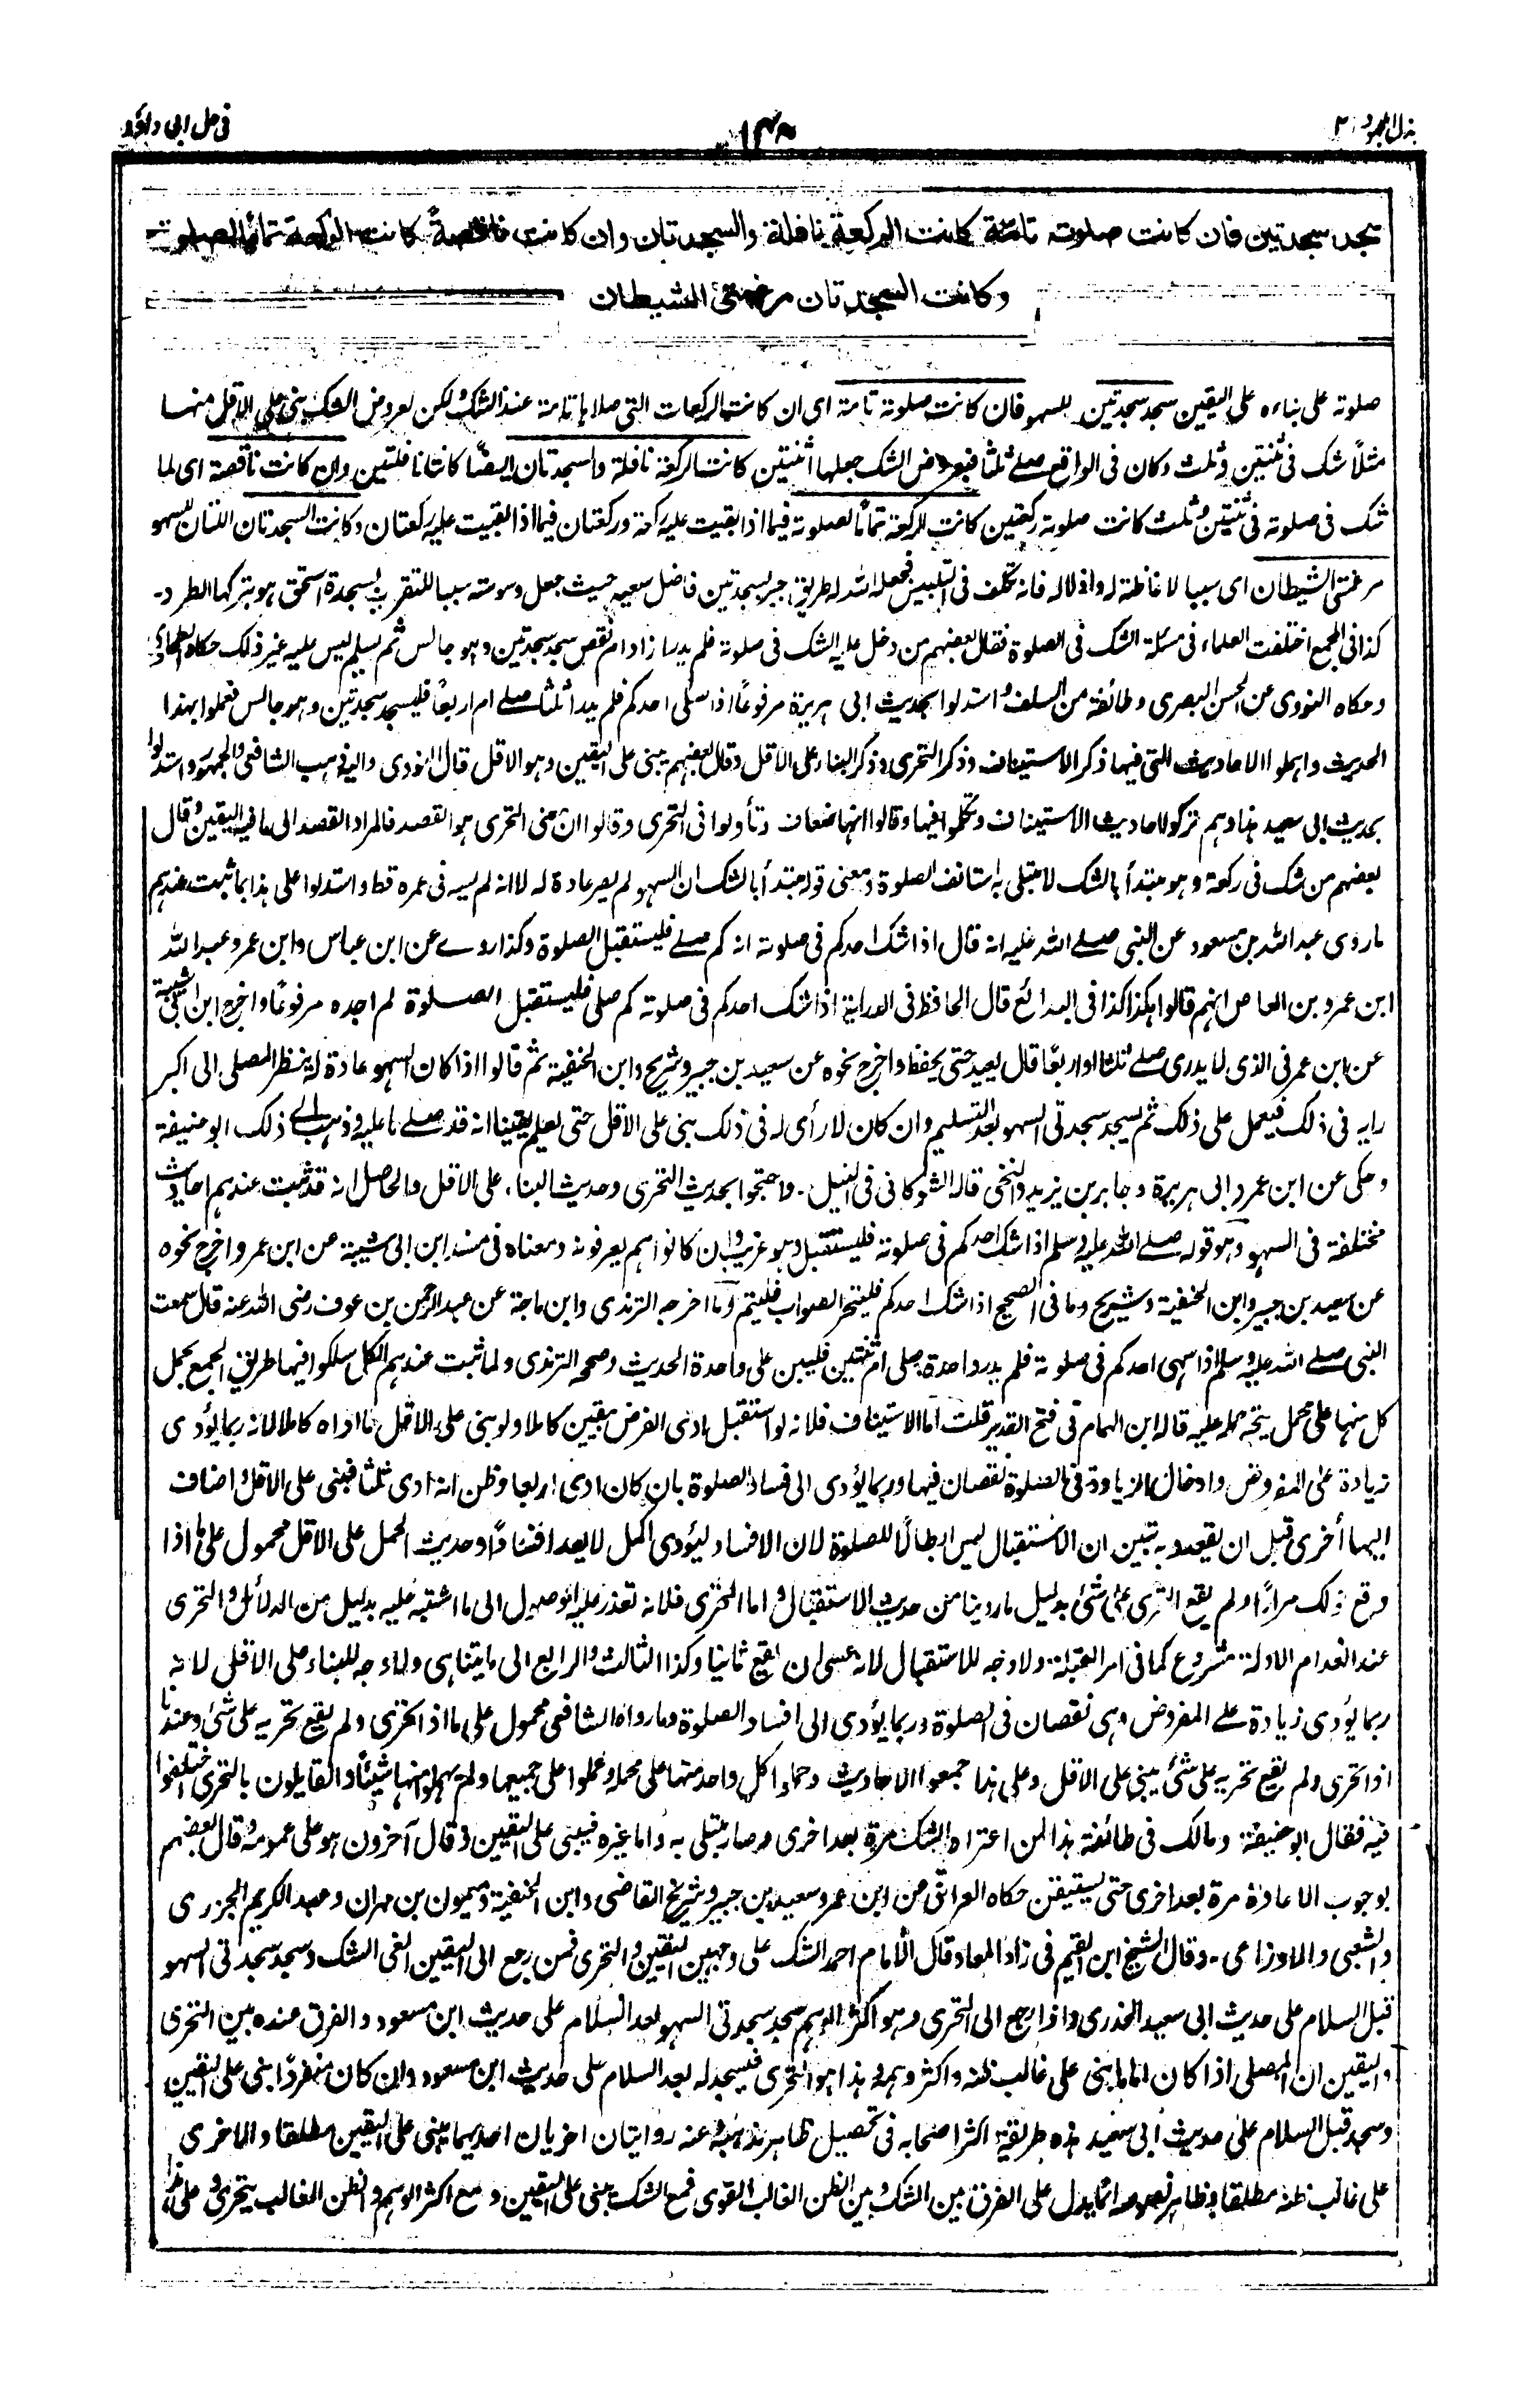 بذل المجهود ٢
١٤٨
في حل ابي داؤد
سجد سجدتين فان كانت صلوته تامّة كانت الركعة نافلة والسجدتان وان كانت ناقصةً كانت الركعة تمامًا لصلوته
وكانت السجدتان مرغمتى الشيطان
صلوته على بناءه على اليقين سجد سجدتين للسهو فان كانت صلوته تامة اى ان كانت الركعات التى صلاها تامة عند الشك ولكن لعروض الشك بنى على الاقل منها
مثلاً شك فى ثنتين وثلث وكان فى الواقع صلى ثلثا فبعروض الشك جعلها اثنتين كانت الركعة نافلة والسجدتان ايضًا كانتا نافلتين وان كانت ناقصة اى لما
شك فى صلوته فى ثنتين وثلث كانت صلوته ركعتين كانت الركعة تمامًا لصلوته فيما اذا بقيت عليه ركعة وركعتان فيما اذا بقيت عليه ركعتان وكانت السجدتان اللتان للسهو
مرغمتى الشيطان اى سببا لاغاظته له واذلاله فانه تكلف فى التلبيس فجعل الله له طريق جبر بسجدتين فاضل سعيه حيث جعل وسوسته سببا للتقرب بسجدة استحق هو بتركها الطرد۔
كذا فى المجمع اختلفت العلماء فى مسئلة الشك فى الصلوة فقال بعضهم من دخل عليه الشك فى صلوته فلم يدر ازاد ام نقص سجد سجدتين وهو جالس ثم يسلم ليس عليه غير ذلك حكاه الطحاوى
وحكاه النووى عن الحسن البصرى وطائفة من السلف واستدلوا بحديث ابى هريرة مرفوعًا اذا صلى احدكم فلم يدر أثلثا صلى ام اربعا فليسجد سجدتين وهو جالس فعملوا بهذا
الحديث واهملوا الاحاديث التى فيها ذكر الاستيناف وذكر التحرى وذكر البناء على الاقل وقال بعضهم يبنى على اليقين وهو الاقل قال النووى واليه ذهب الشافعى والجمهور واستدلوا
بحديث ابى سعيد هذا وهم تركوا احاديث الاستيناف وتكلموا فيها وقالوا انها ضعاف وتأولوا فى التحرى وقالوا ان معنى التحرى هو القصد فالمراد القصد الى ما فيه اليقين وقال
بعضهم من شك فى ركعة وهو مبتدأ بالشك لا مبتلى به استانف الصلوة ومعنى قوله مبتدأ بالشك ان السهو لم يصر عادة له لا انه لم يسه فى عمره قط واستدلوا على هذا بما ثبت عندهم
ما روى عبد الله بن مسعود عن النبى صلى الله عليه انه قال اذا شك احدكم فى صلوته انه كم صلى فليستقبل الصلوة وكذا روى عن ابن عباس وابن عمر وعبد الله
ابن عمرو بن العاص انهم قالوا هكذا كذا فى البدائع قال الحافظ فى الدراية اذا شك احدكم فى صلوته كم صلى فليستقبل الصلوة لم اجده مرفوعًا واخرج ابن ابى شيبة
عن ابن عمر فى الذى لا يدرى صلى ثلثا او اربعًا قال يعيد حتى يحفظ واخرج نحوه عن سعيد بن جبير وشريح وابن الحنفية ثم قالوا اذا كان السهو عادة له ينظر المصلى الى اكبر
رايه فى ذلك فيعمل على ذلك ثم يسجد سجدتى السهو بعد التسليم وان كان لا رأى له فى ذلك بنى على الاقل حتى يعلم يقينا انه قد صلى ما عليه وذهب الى ذلك ابو حنيفة
وحكى عن ابن عمر وابى هريرة وجابر بن يزيد والنخعى قاله الشوكانى فى النيل۔ واحتجوا بحديث التحرى وحديث البناء على الاقل والحاصل انه قد ثبت عندهم احاديث
مختلفة فى السهو وهو قوله صلى الله عليه وسلم اذا شك احدكم فى صلوته فليستقبل وهو غريب وان كانوا هم يعرفونه ومعناه فى مسند ابن ابى شيبة عن ابن عمر واخرج نحوه
عن سعيد بن جبير وابن الحنفية وشريح وما فى الصحيح اذا شك احدكم فليتحر الصواب فليتم وما اخرجه الترمذى وابن ماجة عن عبد الرحمن بن عوف رضى الله عنه قال سمعت
النبى صلى الله عليه وسلم اذا سهى احدكم فى صلوته فلم يدر واحدة صلى ام ثنتين فليبن على واحدة الحديث وصححه الترمذى ولما ثبت عندهم الكل سلكوا فيها طريق الجمع بحمل
كل منها على محمل يتجه حمله عليه قاله ابن الهمام فى فتح القدير قلت اما الاستيناف فلانه لو استقبل ادى الفرض بيقين كاملا ولو بنى على الاقل ما اداه كاملا لانه ربما يؤدى
زيادة على المفروض وادخال الزيادة فى الصلوة نقصان فيها وربما يؤدى الى فساد الصلوة بان كان ادى اربعا وظن انه ادى ثلثا فبنى على الاقل واضاف
اليها أخرى قبل ان يقعد وبه تبين ان الاستقبال ليس ابطالًا للصلوة لان الافساد ليؤدى اكمل لا يعد افسادًا وحديث الحمل على الاقل محمول على ما اذا
وقع ذلك مرارًا ولم يقع التحرى على شئ بدليل ما روينا من حديث الاستقبال واما التحرى فلانه تعذر عليه الوصول الى ما اشتبه عليه بدليل من الدلائل والتحرى
عند انعدام الادلة مشروع كما فى امر القبلة ولا وجه للاستقبال لانه عسى ان يقع ثانيا وكذا الثالث والرابع الى ما يتناهى ولا وجه للبناء على الاقل لانه
ربما يؤدى زيادة على المفروض وهى نقصان فى الصلوة وربما يؤدى الى افساد الصلوة وما رواه الشافعى محمول على ما اذا تحرى ولم يقع تحريه على شئ وعندنا
اذا تحرى ولم يقع تحريه على شئ يبنى على الاقل وعلى هذا جمعوا الاحاديث وحملوا كل واحد منها على محمله وعملوا على جميعها ولم يهملوا منها شيئًا والقايلون بالتحرى اختلفوا
فيه فقال ابو حنيفة ومالك فى طائفة هذا لمن اعتراه الشك مرة بعد اخرى وصار مبتلى به واما غيره فيبنى على اليقين وقال آخرون هو على عمومه وقال بعضهم
بوجوب الاعادة مرة بعد اخرى حتى يستيقن حكاه العراقى عن ابن عمر وسعيد بن جبير وشريح القاضى وابن الحنفية وميمون بن مهران وعبد الكريم الجزرى
والشعبى والاوزاعى۔ وقال الشيخ ابن القيم فى زاد المعاد قال الامام احمد الشك على وجهين اليقين والتحرى فمن رجع الى اليقين الغى الشك وسجد سجدتى السهو
قبل السلام على حديث ابى سعيد الخدرى واذا رجع الى التحرى وهو اكثر الوهم سجد سجدتى السهو بعد السلام على حديث ابن مسعود والفرق عنده بين التحرى
واليقين ان المصلى اذا كان اماما بنى على غالب ظنه واكثر وهمه وهذا هو التحرى فيسجد له بعد السلام على حديث ابن مسعود وان كان منفردًا بنى على اليقين
وسجد قبل السلام على حديث ابى سعيد هذه طريقة اكثر اصحابه فى تحصيل ظاهر مذهبه وعنه روايتان اخريان احديهما يبنى على اليقين مطلقا والاخرى
على غالب ظنه مطلقا وظاهر نصوصه انما يدل على الفرق بين الشك وبين الظن الغالب القوى فمع الشك يبنى على اليقين ومع اكثر الوهم والظن الغالب يتحرى وعلى هذا